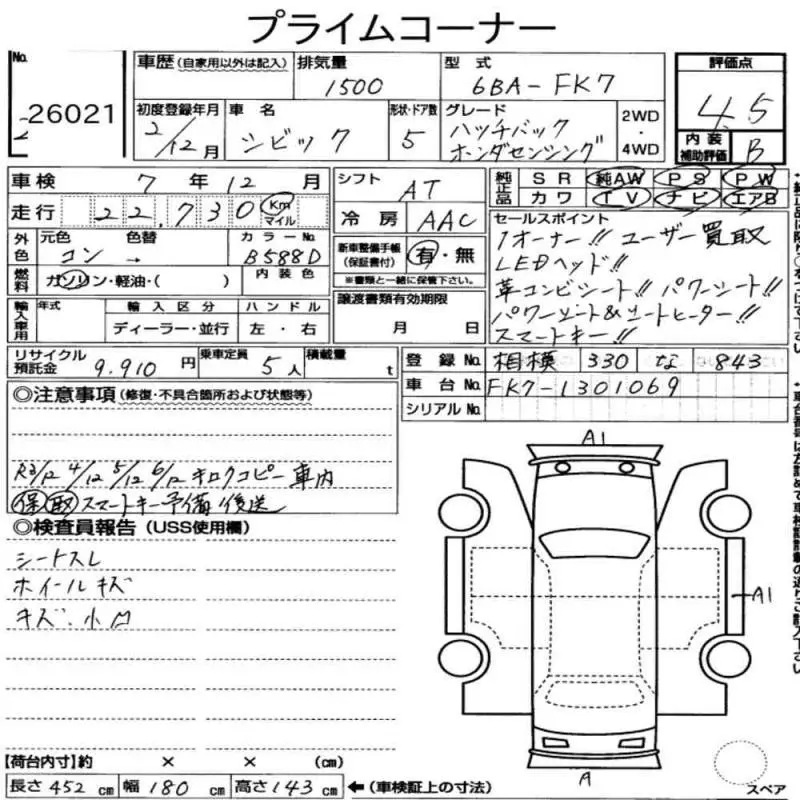 プライムコーナー
No. 26021
車歴 (自家用以外は記入) 排気量 1500 型式 6BA-FK7
評価点 4.5
初度登録年月 2/12月 車名 シビック 形状・ドア数 5 グレード ハッチバック ホンダセンシング 2WD・4WD
内装補助評価 B
車検 7年12月 シフト AT
純正品 SR 純AW PS PW
カワ TV ナビ エアB
走行 22,730 Km マイル 冷房 AAC
外色 元色 コン 色替 → カラーNo. B588D
新車整備手帳 (保証書付) 有・無
※書類と一緒に保管下さい。
セールスポイント
1オーナー!! ユーザー買取
LEDヘッド!!
革コンビシート!! パワーシート!!
パワーシート&シートヒーター!!
スマートキー!!
燃料 ガソリン・軽油・( ) 内装色
譲渡書類有効期限 月 日
輸入車用 年式 輸入区分 ハンドル
ディーラー・並行 左・右
リサイクル預託金 9,910円 乗車定員 5人 積載量 t
登録No. 相模 330 な 843
車台No. FK7-1301069
シリアルNo.
◎注意事項 (修復・不具合箇所および状態等)
R3/12 4/12 5/12 6/12 キロクコピー車内
保 取 スマートキー予備後送
◎検査員報告 (USS使用欄)
シートスレ
ホイールキズ
キズ、小凹
A1
A1
A
スペア
【荷台内寸】約 × × (cm)
長さ 452 cm 幅 180 cm 高さ 143 cm ←(車検証上の寸法)